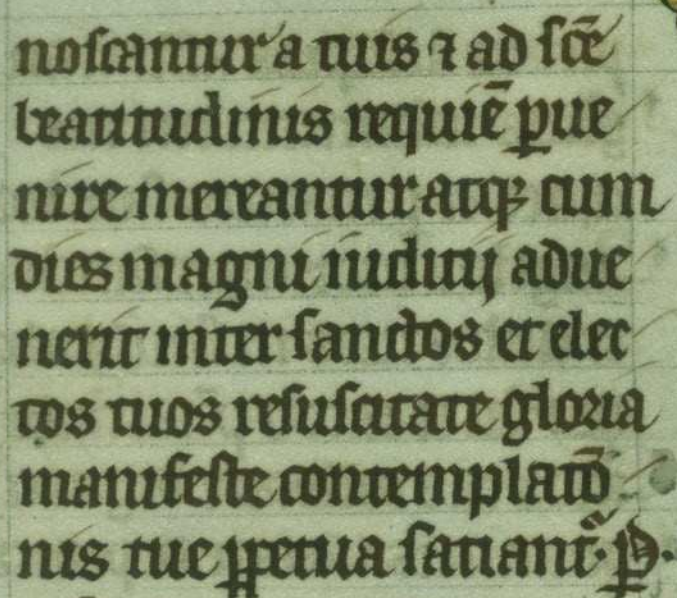 noſcantur a tuis ⁊ ad ſcē
beatitudinis requiē ꝑue
nire mereantur atqꝫ cum
dies magni iuditij adue
nerit inter ſanctos et elec
tos tuos reſuſcitate gloria
manifeſte contemplatō
nis tue ꝑpetua ſatiant᷑. P̱.